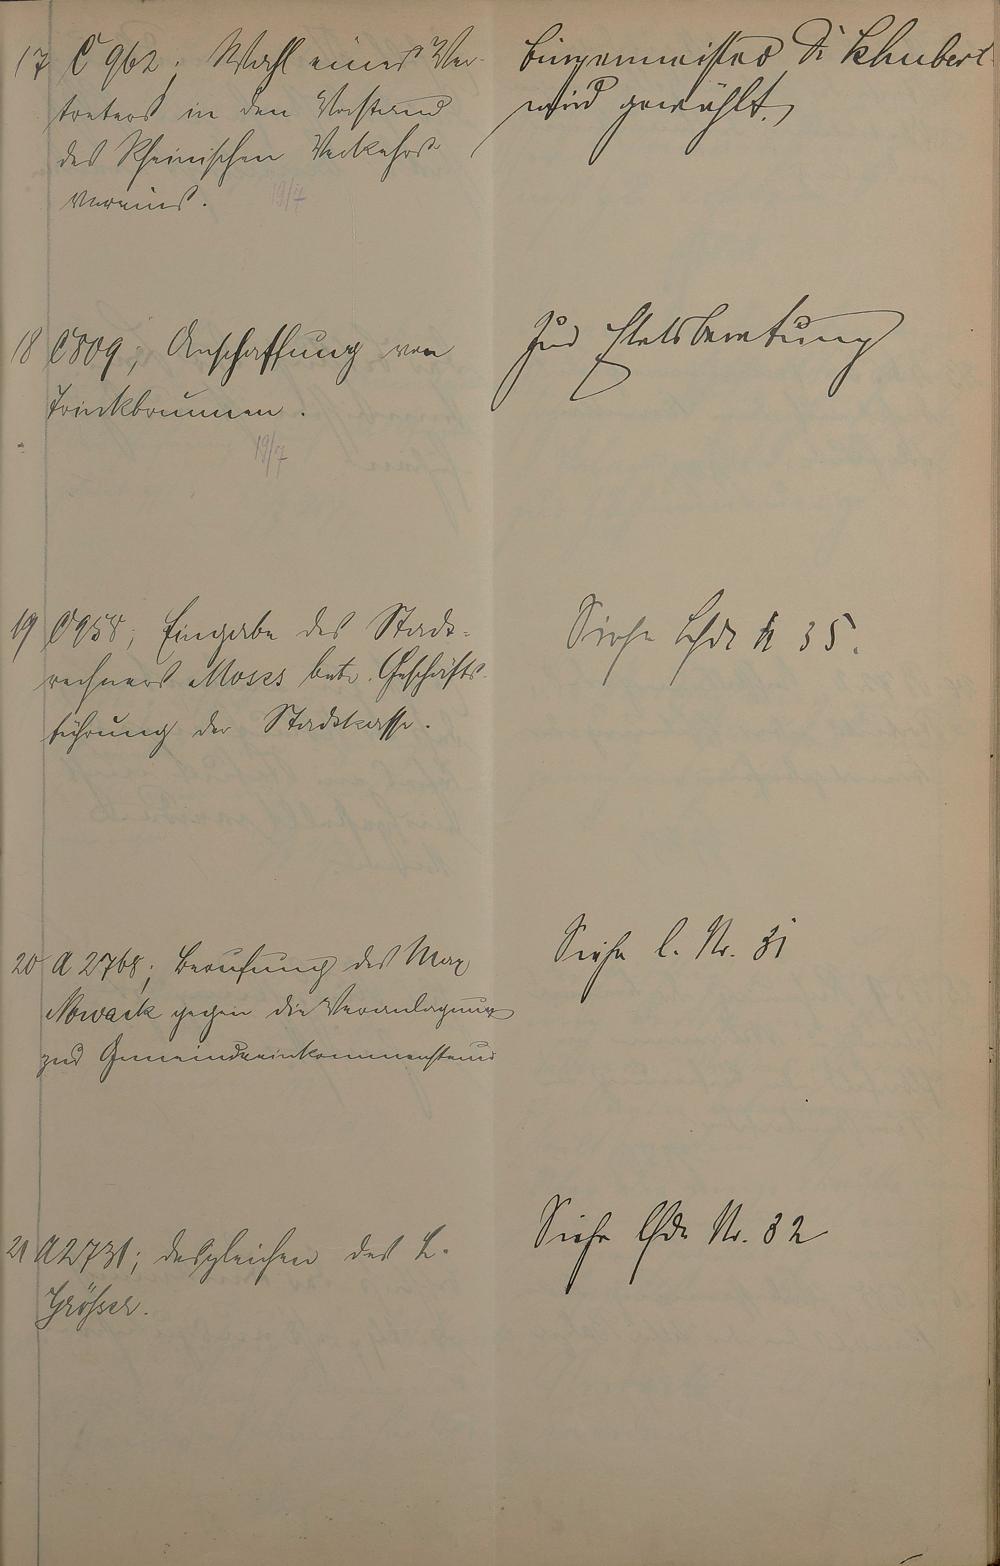 17 C 962; Wahl eines Ver-
treters in den Vorstand
des Rheinischen Verkehrs
vereins.
19/7
Bürgermeister Dr Schubert
wird gewählt.
18 C 809; Anschaffung von
Trinkbrunnen.
19/7
Zur Etatsberatung
19 C 958; Eingabe des Stadt-
rechners Moses betr. Geschäfts-
führung der Stadtkasse.
Siehe lfde N 35.
20 A 2768; Berufung des Max
Nowack gegen die Veranlagung
zur Gemeindeeinkommensteuer
Siehe l. Nr. 31
21 A 2731; desgleichen des L.
Größer.
Siehe lfde Nr. 32